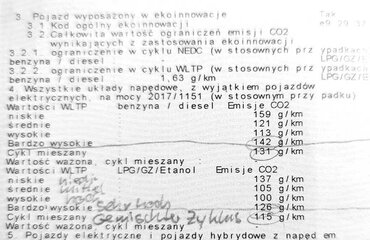 3. Pojazd wyposażony w ekoinnowacje Tak
3.1 Kod ogólny ekoinnowacji e9 29 37
3.2 Całkowita wartość ograniczeń emisji CO2
wynikających z zastosowania ekoinnowacji
3.2.1. ograniczenie w cyklu NEDC (w stosownych przypadkach
benzyna / diesel - LPG/GZ/E
3.2.2. ograniczenie w cyklu WLTP (w stosownych przypadkach
benzyna / diesel 1,63 g/km LPG/GZ/E
4. Wszystkie układy napędowe, z wyjątkiem pojazdów
elektrycznych, na mocy 2017/1151 (w stosownym przypadku)
Wartości WLTP benzyna / diesel Emisje CO2
niskie 159 g/km
średnie 121 g/km
wysokie 113 g/km
Bardzo wysokie 142 g/km
Cykl mieszany 131 g/km
Wartość ważona, cykl mieszany : - g/km
Wartości WLTP LPG/GZ/Etanol Emisje CO2
niskie niedr 137 g/km
średnie mittel 105 g/km
wysokie hoch 100 g/km
Bardzo wysokie sehr hoch 126 g/km
Cykl mieszany Gemischter Zyklus 115 g/km
Wartość ważona, cykl mieszany : - g/km
5. Pojazdy elektryczne i pojazdy hybrydowe z napędem